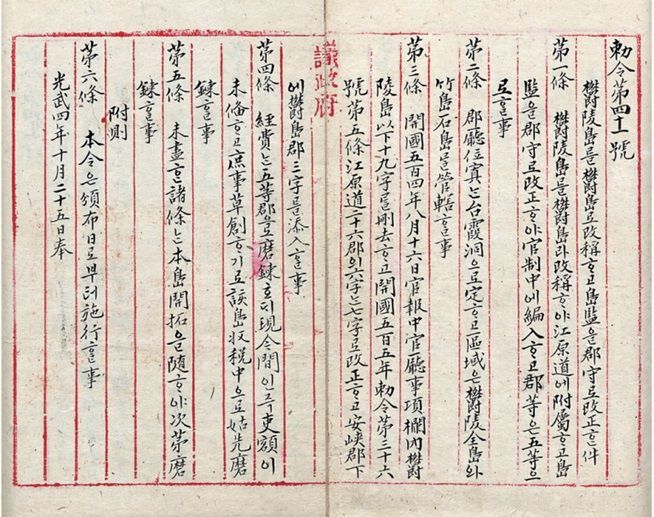 勅令第四十一號
欝陵島를欝島로改稱ᄒᆞ고島監을郡守로改正ᄒᆞᆫ件
第一條 欝陵島를欝島라改稱ᄒᆞ야江原道에附屬ᄒᆞ고島
監을郡守로改正ᄒᆞ야官制中에編入ᄒᆞ고郡等은五等으
로ᄒᆞᆯ事
第二條 郡廳位寘는台霞洞으로定ᄒᆞ고區域은欝陵全島와
竹島石島를管轄ᄒᆞᆯ事
第三條 開國五百四年八月十六日官報中官廳事項欄內欝
陵島以下十九字를刪去ᄒᆞ고開國五百五年勅令第三十六
號第五條江原道二十六郡의六字는七字로改正ᄒᆞ고安峽郡下
議政府
에欝島郡三字를添入ᄒᆞᆯ事
第四條 經費는五等郡으로磨鍊호ᄃᆡ現今間인즉吏額이
未備ᄒᆞ고庶事草創ᄒᆞ기로該島收稅中으로姑先磨
鍊ᄒᆞᆯ事
第五條 未盡ᄒᆞᆫ諸條는本島開拓을隨ᄒᆞ야次第磨
鍊ᄒᆞᆯ事
附則
第六條 本令은頒布日로부터施行ᄒᆞᆯ事
光武四年十月二十五日奉